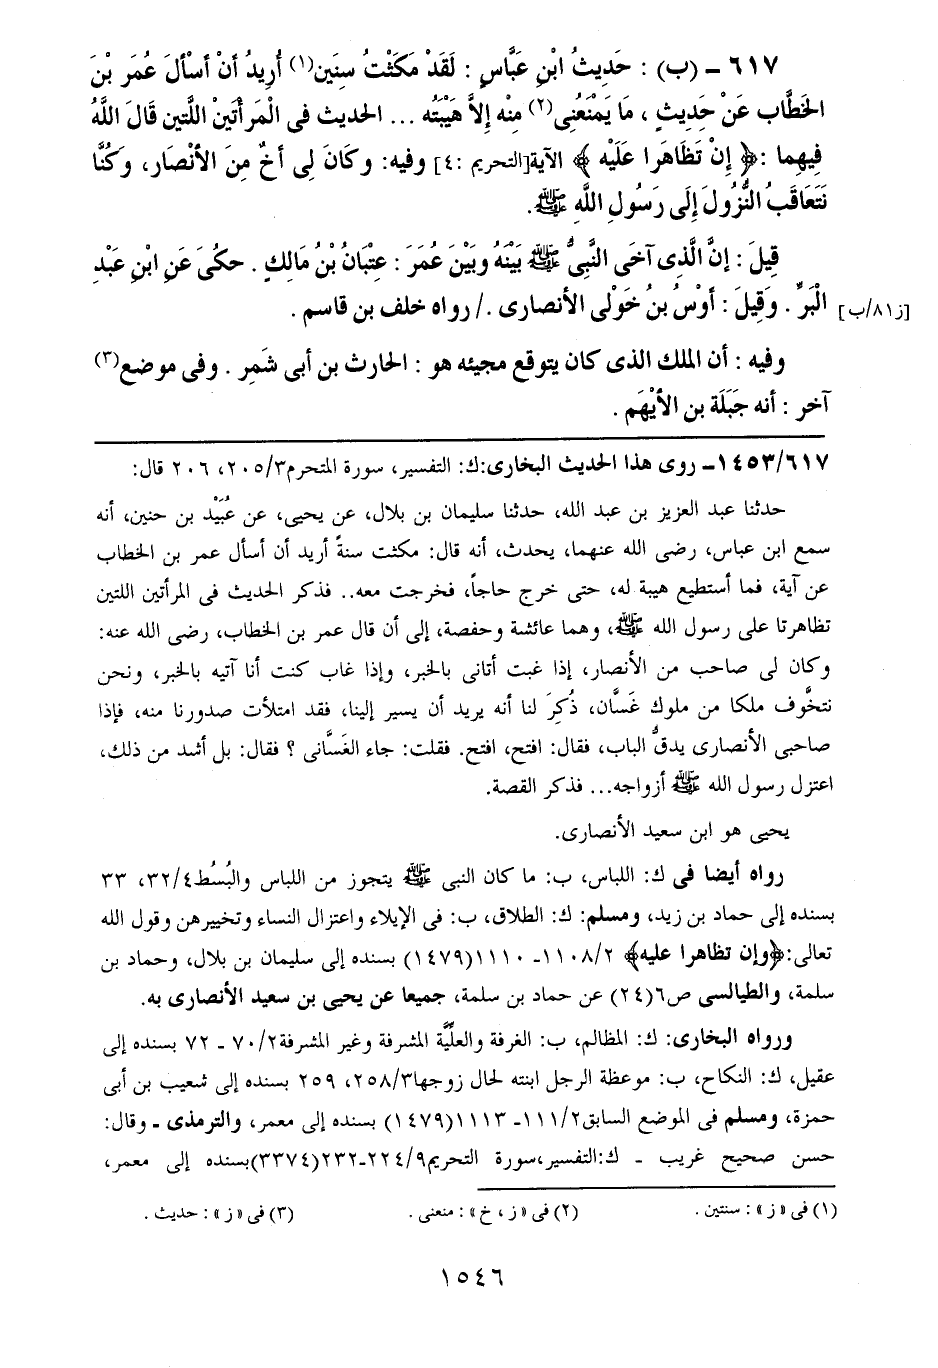 ٦١٧ – (ب) : حَدِيثُ ابْنِ عَبَّاسٍ : لَقَدْ مَكَثْتُ سِنَين(١) أُرِيدُ أنْ أسْألَ عُمَر بْنَ
الخَطَّاب عَنْ حَدِيثٍ ، مَا يَمنَعُنِى(٢) مِنْه إلاَّ هَيْبَتُه ... الحديث فى الْمَرأتَيْنِ اللَّتين قَالَ اللَّهُ
فِيهِما : ﴿ إِنْ تَظَاهَرَا عَلَيْه ﴾ الآية[التحريم :٤] وفيه: وكَانَ لِى أخٌ مِنَ الأنْصَار، وَكُنَّا
نَتَعَاقَبُ النُّزُولَ إلَى رَسُولِ اللَّهِ ﷺ.
قِيلَ : إنَّ الَّذِى آخَى النَّبِىُّ ﷺ بَيْنَهُ وبَيْنَ عُمَرَ : عِتْبَانُ بْنُ مَالِكٍ . حكُىَ عَنِ ابْنِ عَبْدِ
الْبَرِّ . وَقِيلَ : أوْسُ بنُ خَوْلى الأنصارى ./ رواه خلف بن قاسم . [ز٨١/ب]
وفيه : أن الملك الذى كان يتوقع مجيئه هو : الحارث بن أبى شَمِر . وفى موضع(٣)
آخر : أنه جَبَلَة بن الأيْهَم .
١٤٥٣/٦١٧– روى هذا الحديث البخارى:ك: التفسير، سورة المتحرم٢٠٥/٣، ٢٠٦ قال:
حدثنا عبد العزيز بن عبد الله، حدثنا سليمان بن بلال، عن يحيى، عن عُبَيْد بن حنين، أنه
سمع ابن عباس، رضى الله عنهما، يحدث، أنه قال: مكثت سنةً أريد أن أسأل عمر بن الخطاب
عن آية، فما أستطيع هيبة له، حتى خرج حاجاً، فخرجت معه.. فذكر الحديث فى المرأتين اللتين
تظاهرتا على رسول الله ﷺ، وهما عائشة وحفصة، إلى أن قال عمر بن الخطاب، رضى الله عنه:
وكان لى صاحب من الأنصار، إذا غبت أتانى بالخبر، وإذا غاب كنت أنا آتيه بالخبر، ونحن
نتخَّوف ملكا من ملوك غَسَّان، ذُكِرَ لنا أنه يريد أن يسير إلينا، فقد امتلأت صدورنا منه، فإذا
صاحبى الأنصارى يدقُّ الباب، فقال: افتح، افتح. فقلت: جاء الغَسَّانى ؟ فقال: بل أشد من ذلك،
اعتزل رسول الله ﷺ أزواجه... فذكر القصة.
يحيى هو ابن سعيد الأنصارى.
رواه أيضا فى ك: اللباس، ب: ما كان النبى ﷺ يتجوز من اللباس والبُسُط٣٢/٤، ٣٣
بسنده إلى حماد بن زيد، ومسلم: ك: الطلاق، ب: فى الإيلاء واعتزال النساء وتخييرهن وقول الله
تعالى:﴿وإن تظاهرا عليه﴾ ١١٠٨/٢- ١١١٠(١٤٧٩) بسنده إلى سليمان بن بلال، وحماد بن
سلمة، والطيالسى ص٦(٢٤) عن حماد بن سلمة، جميعا عن يحيى بن سعيد الأنصارى به.
ورواه البخارى: ك: المظالم، ب: الغرفة والعلِّيَّة المشرفة وغير المشرفة٧٠/٢ – ٧٢ بسنده إلى
عقيل، ك: النكاح، ب: موعظة الرجل ابنته لحال زوجها٢٥٨/٣، ٢٥٩ بسنده إلى شعيب بن أبى
حمزة، ومسلم فى الموضع السابق١١١/٢- ١١١٣(١٤٧٩) بسنده إلى معمر، والترمذى – وقال:
حسن صحيح غريب – ك:التفسير،سورة التحريم٢٢٤/٩-٢٣٢(٣٣٧٤)بسنده إلى معمر،
(١) فى «ز» : سنتين . (٢) فى «ز ، خ» : منعنى . (٣) فى «ز» : حديث .
١٥٤٦